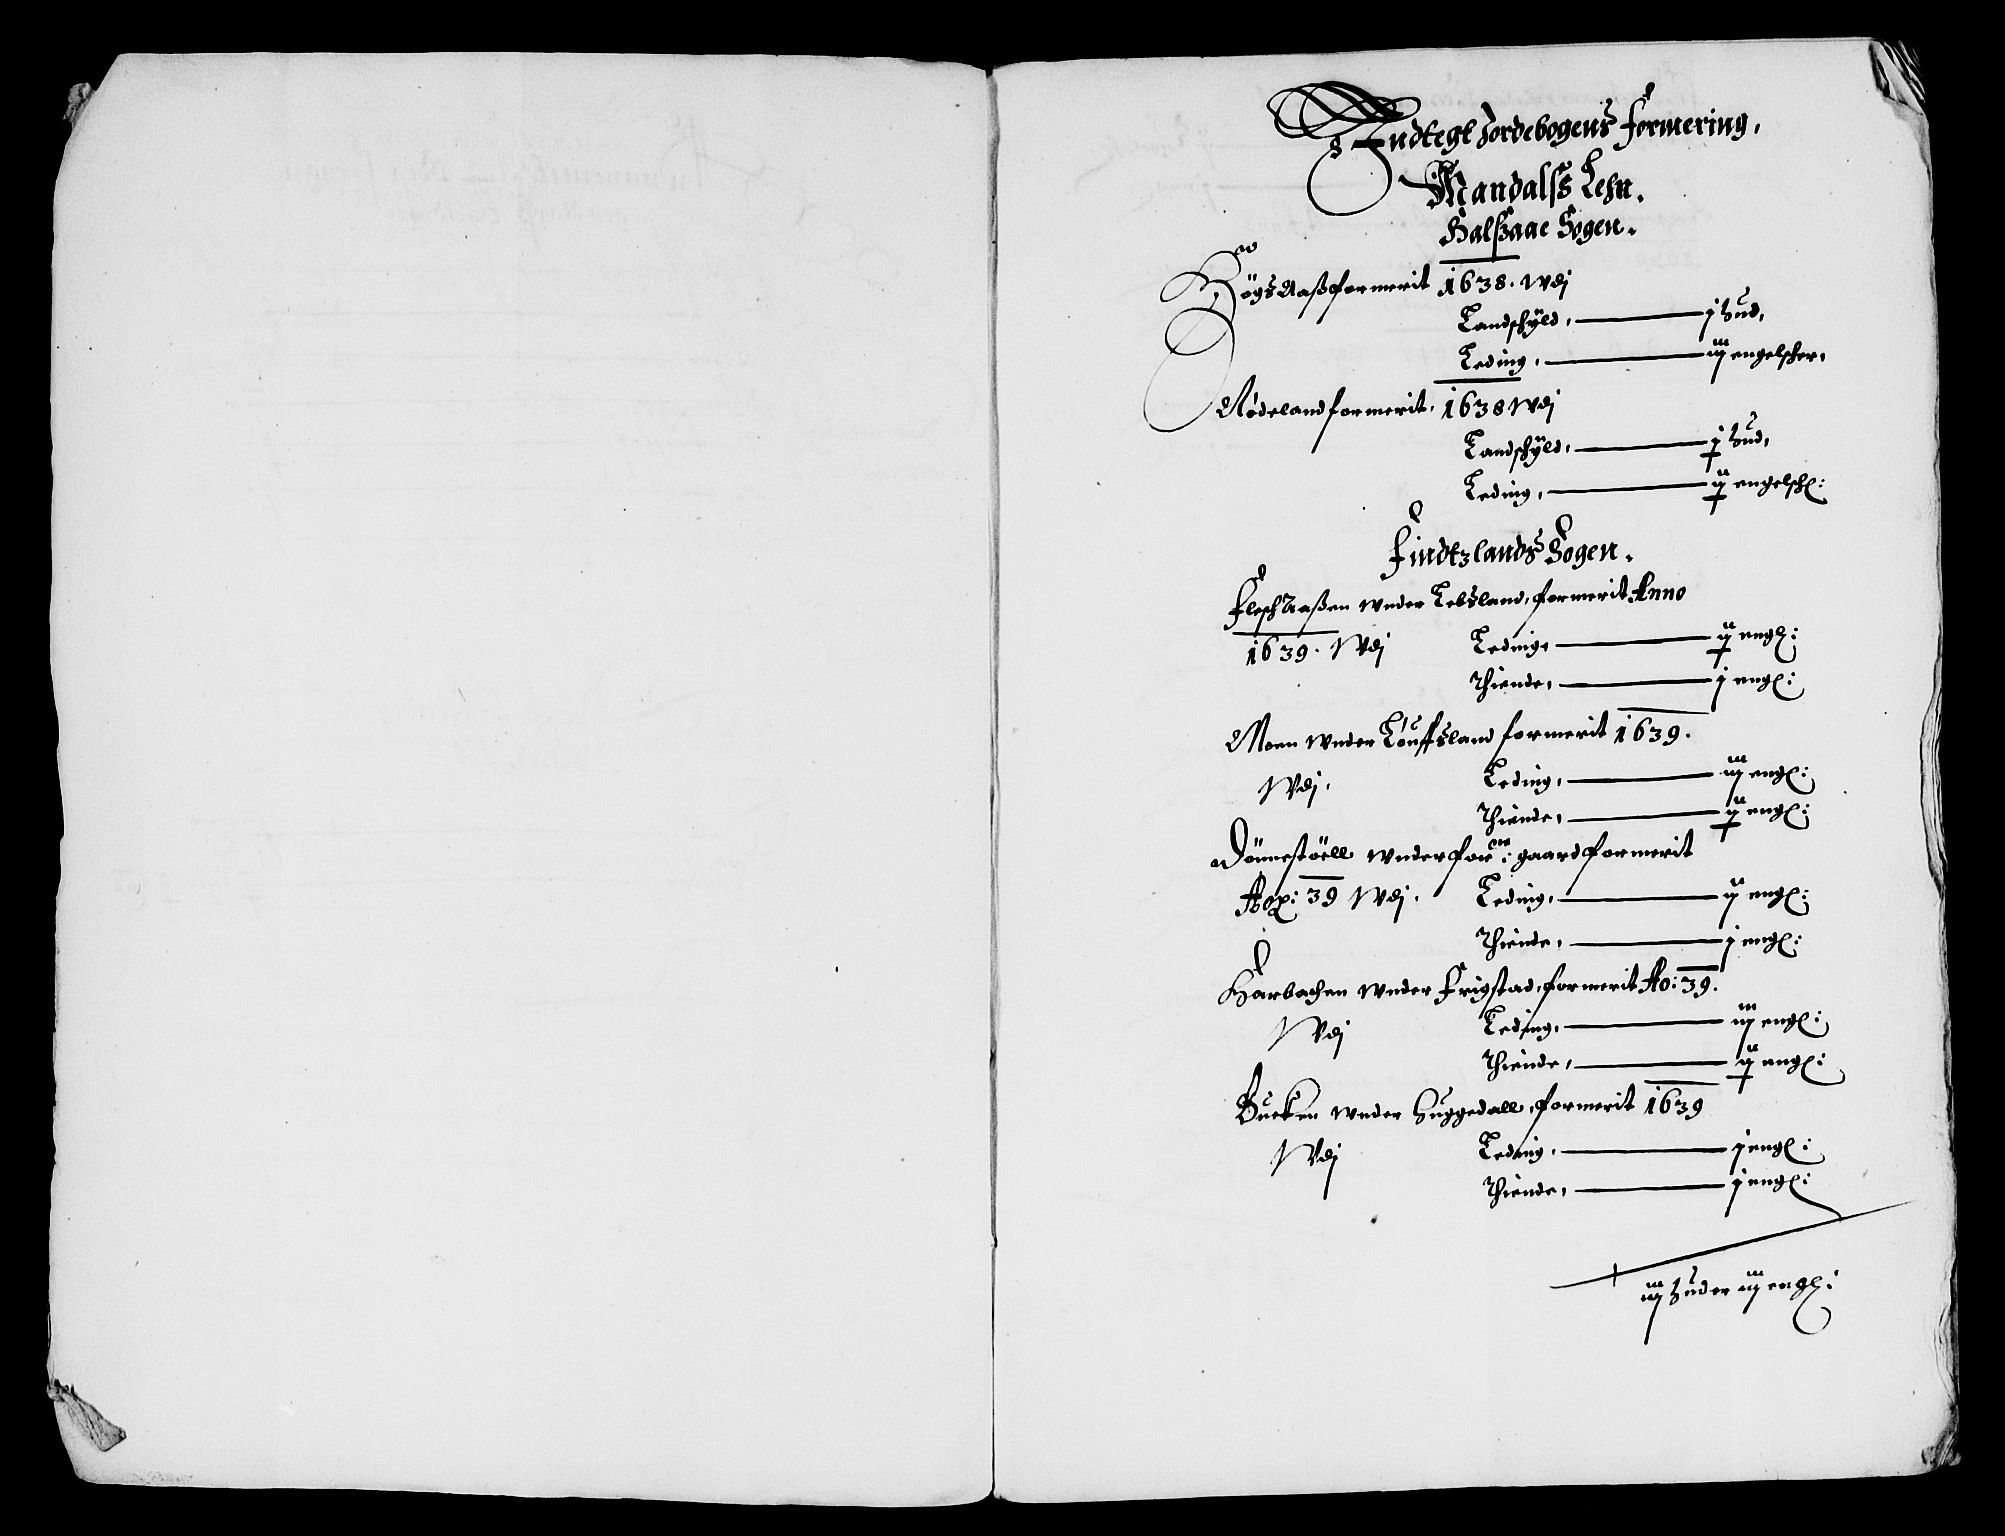 Indtegt Jordebogens formering,
Mandalss Lehn.
Halssaae Sogen.
Högs Aass formerit 1638. Wdj
Landschÿld, j Hud,
Leding, iij engelscher,
Rödeland formerit, 1638 Wdj
Landschÿld, j Hud,
Leding, ij engelsch:
Findtzlands Sogen.
Flesch Aassen wnder Lebsland, formerit Anno
1639. Wdj Leding, ij engl:
Thiende, j engl:
Moen wnder Löuffsland formerit 1639.
Wdj. Leding, iij engl:
Thiende, ij engl:
Dönnestöell wnder for: gaard formerit
39 Wdj. Leding, ij engl:
Thiende, j engl:
Harbachen wnder Frigstad, formerit Ao: 39.
Wdj Leding, iij engl:
Thiende, ij engl:
Bueken wnder Huggedall, formerit 1639
Wdj Leding, j engl:
Thiende, j engl:
iij Huder iij engl: